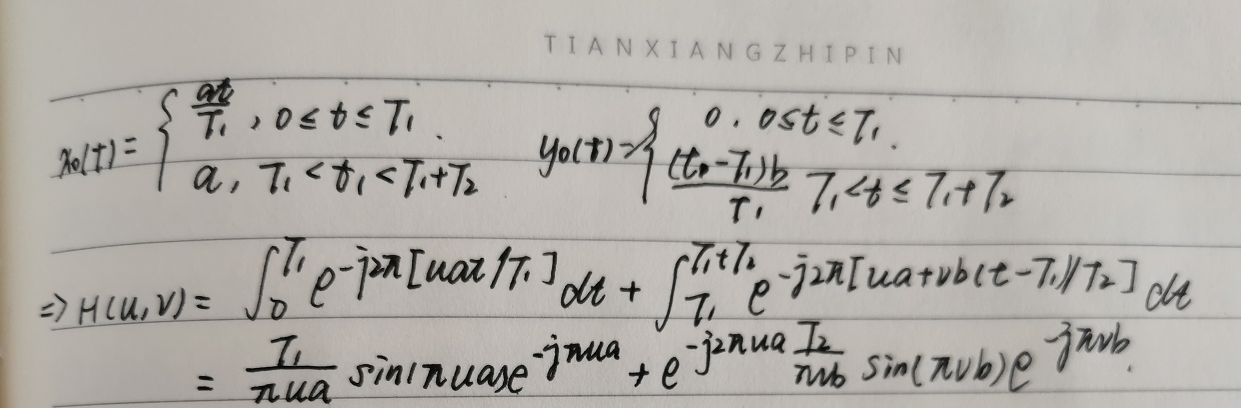 TIANXIANGZHIPIN
x₀(t) = { at/T₁, 0 ≤ t ≤ T₁. y₀(t) = { 0. 0 ≤ t ≤ T₁.
a, T₁ < t₁ < T₁+T₂ (t-T₁)b/T₁ T₁ < t ≤ T₁+T₂
⇒ H(u,v) = ∫₀^{T₁} e^{-j2π[uat/T₁]} dt + ∫_{T₁}^{T₁+T₂} e^{-j2π[ua+vb(t-T₁)/T₂]} dt
= T₁/(πua) sin(πua)e^{-jπua} + e^{-j2πua} T₂/(πvb) sin(πvb)e^{-jπvb}.